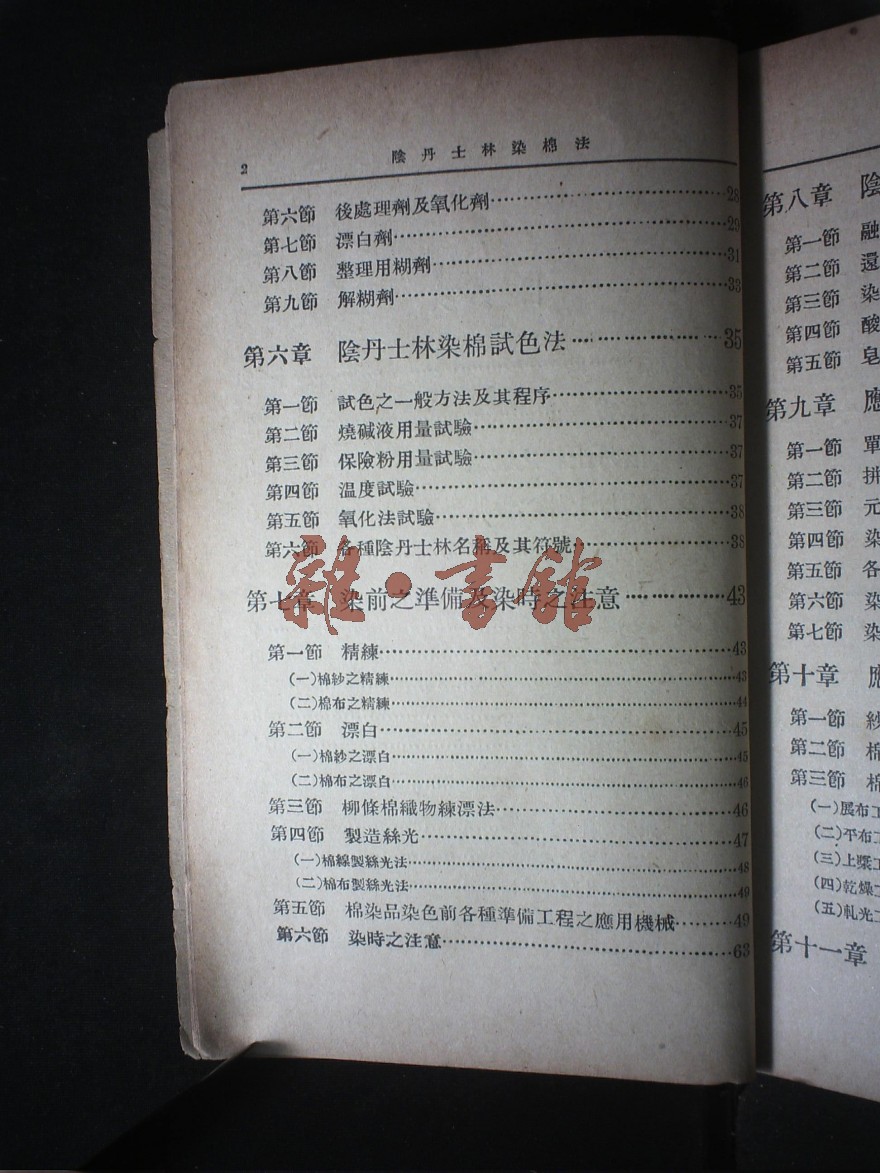 2 陰丹士林染棉法
第六節 後處理劑及氧化劑……28
第七節 漂白劑……29
第八節 整理用糊劑……31
第九節 解糊劑……33
第六章 陰丹士林染棉試色法……35
第一節 試色之一般方法及其程序……35
第二節 燒碱液用量試驗……37
第三節 保險粉用量試驗……37
第四節 温度試驗……37
第五節 氧化法試驗……38
第六節 各種陰丹士林名稱及其符號…38
第七章 染前之準備及染時之注意……43
雜·書館
第一節 精練……43
(一)棉紗之精練……43
(二)棉布之精練……44
第二節 漂白……45
(一)棉紗之漂白……45
(二)棉布之漂白……46
第三節 柳條棉織物練漂法……46
第四節 製造絲光……47
(一)棉線製絲光法……48
(二)棉布製絲光法……49
第五節 棉染品染色前各種準備工程之應用機械……49
第六節 染時之注意……63
第八章 陰
第一節 融
第二節 還
第三節 染
第四節 酸
第五節 皂
第九章 應
第一節 單
第二節 拼
第三節 元
第四節 染
第五節 各
第六節 染
第七節 染
第十章 應
第一節 紗
第二節 棉
第三節 棉
(一)展布工
(二)平布工
(三)上漿工
(四)乾燥工
(五)軋光工
第十一章